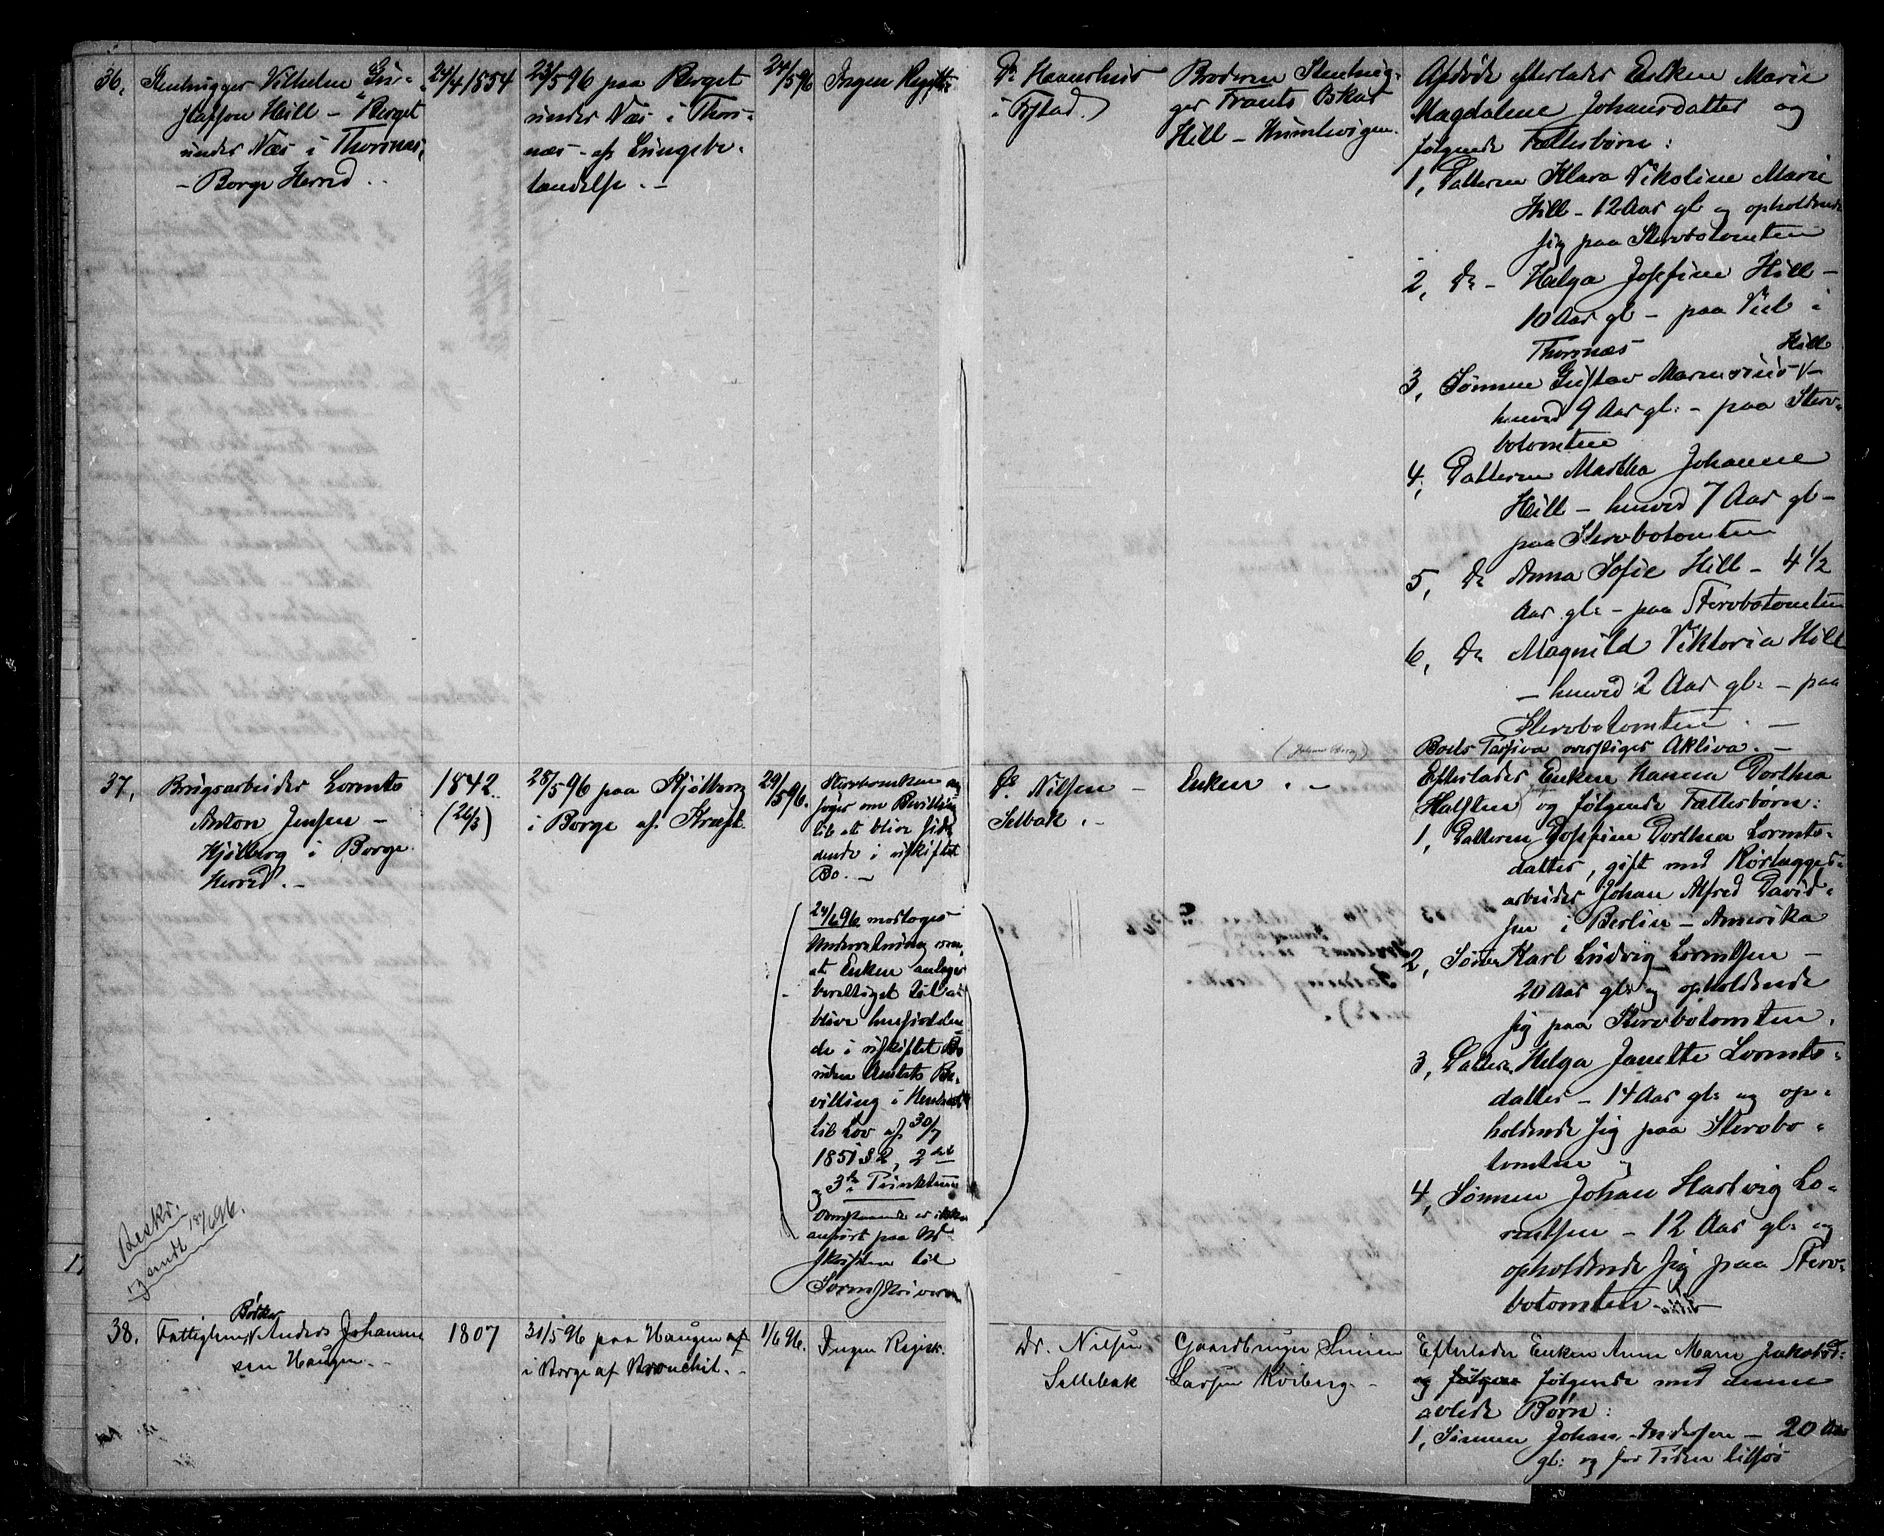 36,
Stenhugger Vilhelm Gus-
tafson Hill – Berget
under Næs i Thorsnæs,
– Borge Herred.
24/4 1854
23/5 96 paa Berget
under Næs i Thors-
næs – af Lungebe-
tændelse. –
24/5 96
Ingen Registr:
Dr. Haneshus
i Fr:stad.
Broderen Stenhug-
ger Frants Oskar
Hill – Humlevigen.
Afdøde efterlader Enken Marie
Magdalene Johansdatter og
følgende Fællesbørn:
1, Datteren Klara Nikoline Marie
Hill – 12 Aar gl. og opholdende
sig paa Stervbotomten
2, Do – Helga Josefine Hill –
10 Aar gl – paa Viel i
Thorsnæs
3, Sønnen Gustav Marensius Hill –
henved 9 Aar gl: – paa Sterv-
botomten
4, Datteren Martha Johanne
Hill – henved 7 Aar gl –
paa Stervbotomten
5, Do Anna Sofie Hill – 4 1/2
Aar gl: – paa Stervbotomten
6, Do Magnild Viktoria Hill
– henved 2 Aar gl: – paa
Stervbotomten. –
Boets Passiva overstiger Aktiva. –
37,
Brugsarbeider Lorents
Anton Jensen –
Hjølberg i Borge
Herred. –
1842
(26/3)
28/5 96 paa Hjølberg
i Borge af Kræft.
29/5 96.
Stervboenken an-
søger om Bevilling
til at blive sid-
dende i uskiftet
Bo. –
24/6 96 modtoges
Underretning om,
at Enken antages
berettiget til at
blive hensidden-
de i uskiftet Bo
uden Amtets Be-
villing i Henhold
til Lov af 30/7
1851 § 2, 2det
og 3die Punktum
Ovenstaaende er ikke
anført paa Ud-
skriften til
Sorenskriveren
Dr. Nilsen –
Selbak. –
Enken. –
Efterlader Enken Hanna Dorthea
Halsten og følgende Fællesbørn:
1, Datteren Josefine Dorthea Lorents-
datter, gift med Rørlægger-
arbeider Johan Alfred David-
sen i Berlin – Amerika
2, Sønen Karl Ludvig Lorentsen –
20 Aar gl: og opholdende
sig paa Stervbotomten.
3, Datteren Helga Janette Lorents-
datter – 14 Aar gl: og op-
holdende sig paa Stervbo-
tomten og
4, Sønnen Johan Hartvig Lo-
rentsen – 12 Aar gl: og
opholdende sig paa Sterv-
botomten –
Beskr.
38.
Bødker
Fattiglem Anders Johannes-
sen Haugen. –
1807
31/5 96 paa Haugen af
i Borge af Bronchit. –
1/6 96.
Ingen Registr.
Dr. Nilsen
Sellebak
Gaardbruger Simen
Larsen Kviberg. –
Efterlader Enken Anne Marie Jakobsd:
og følgene følgende med denne
avlede Børn:
1, Sønnen Johan Andersen – 20 Aar
gl: og for Tiden tilsjøs